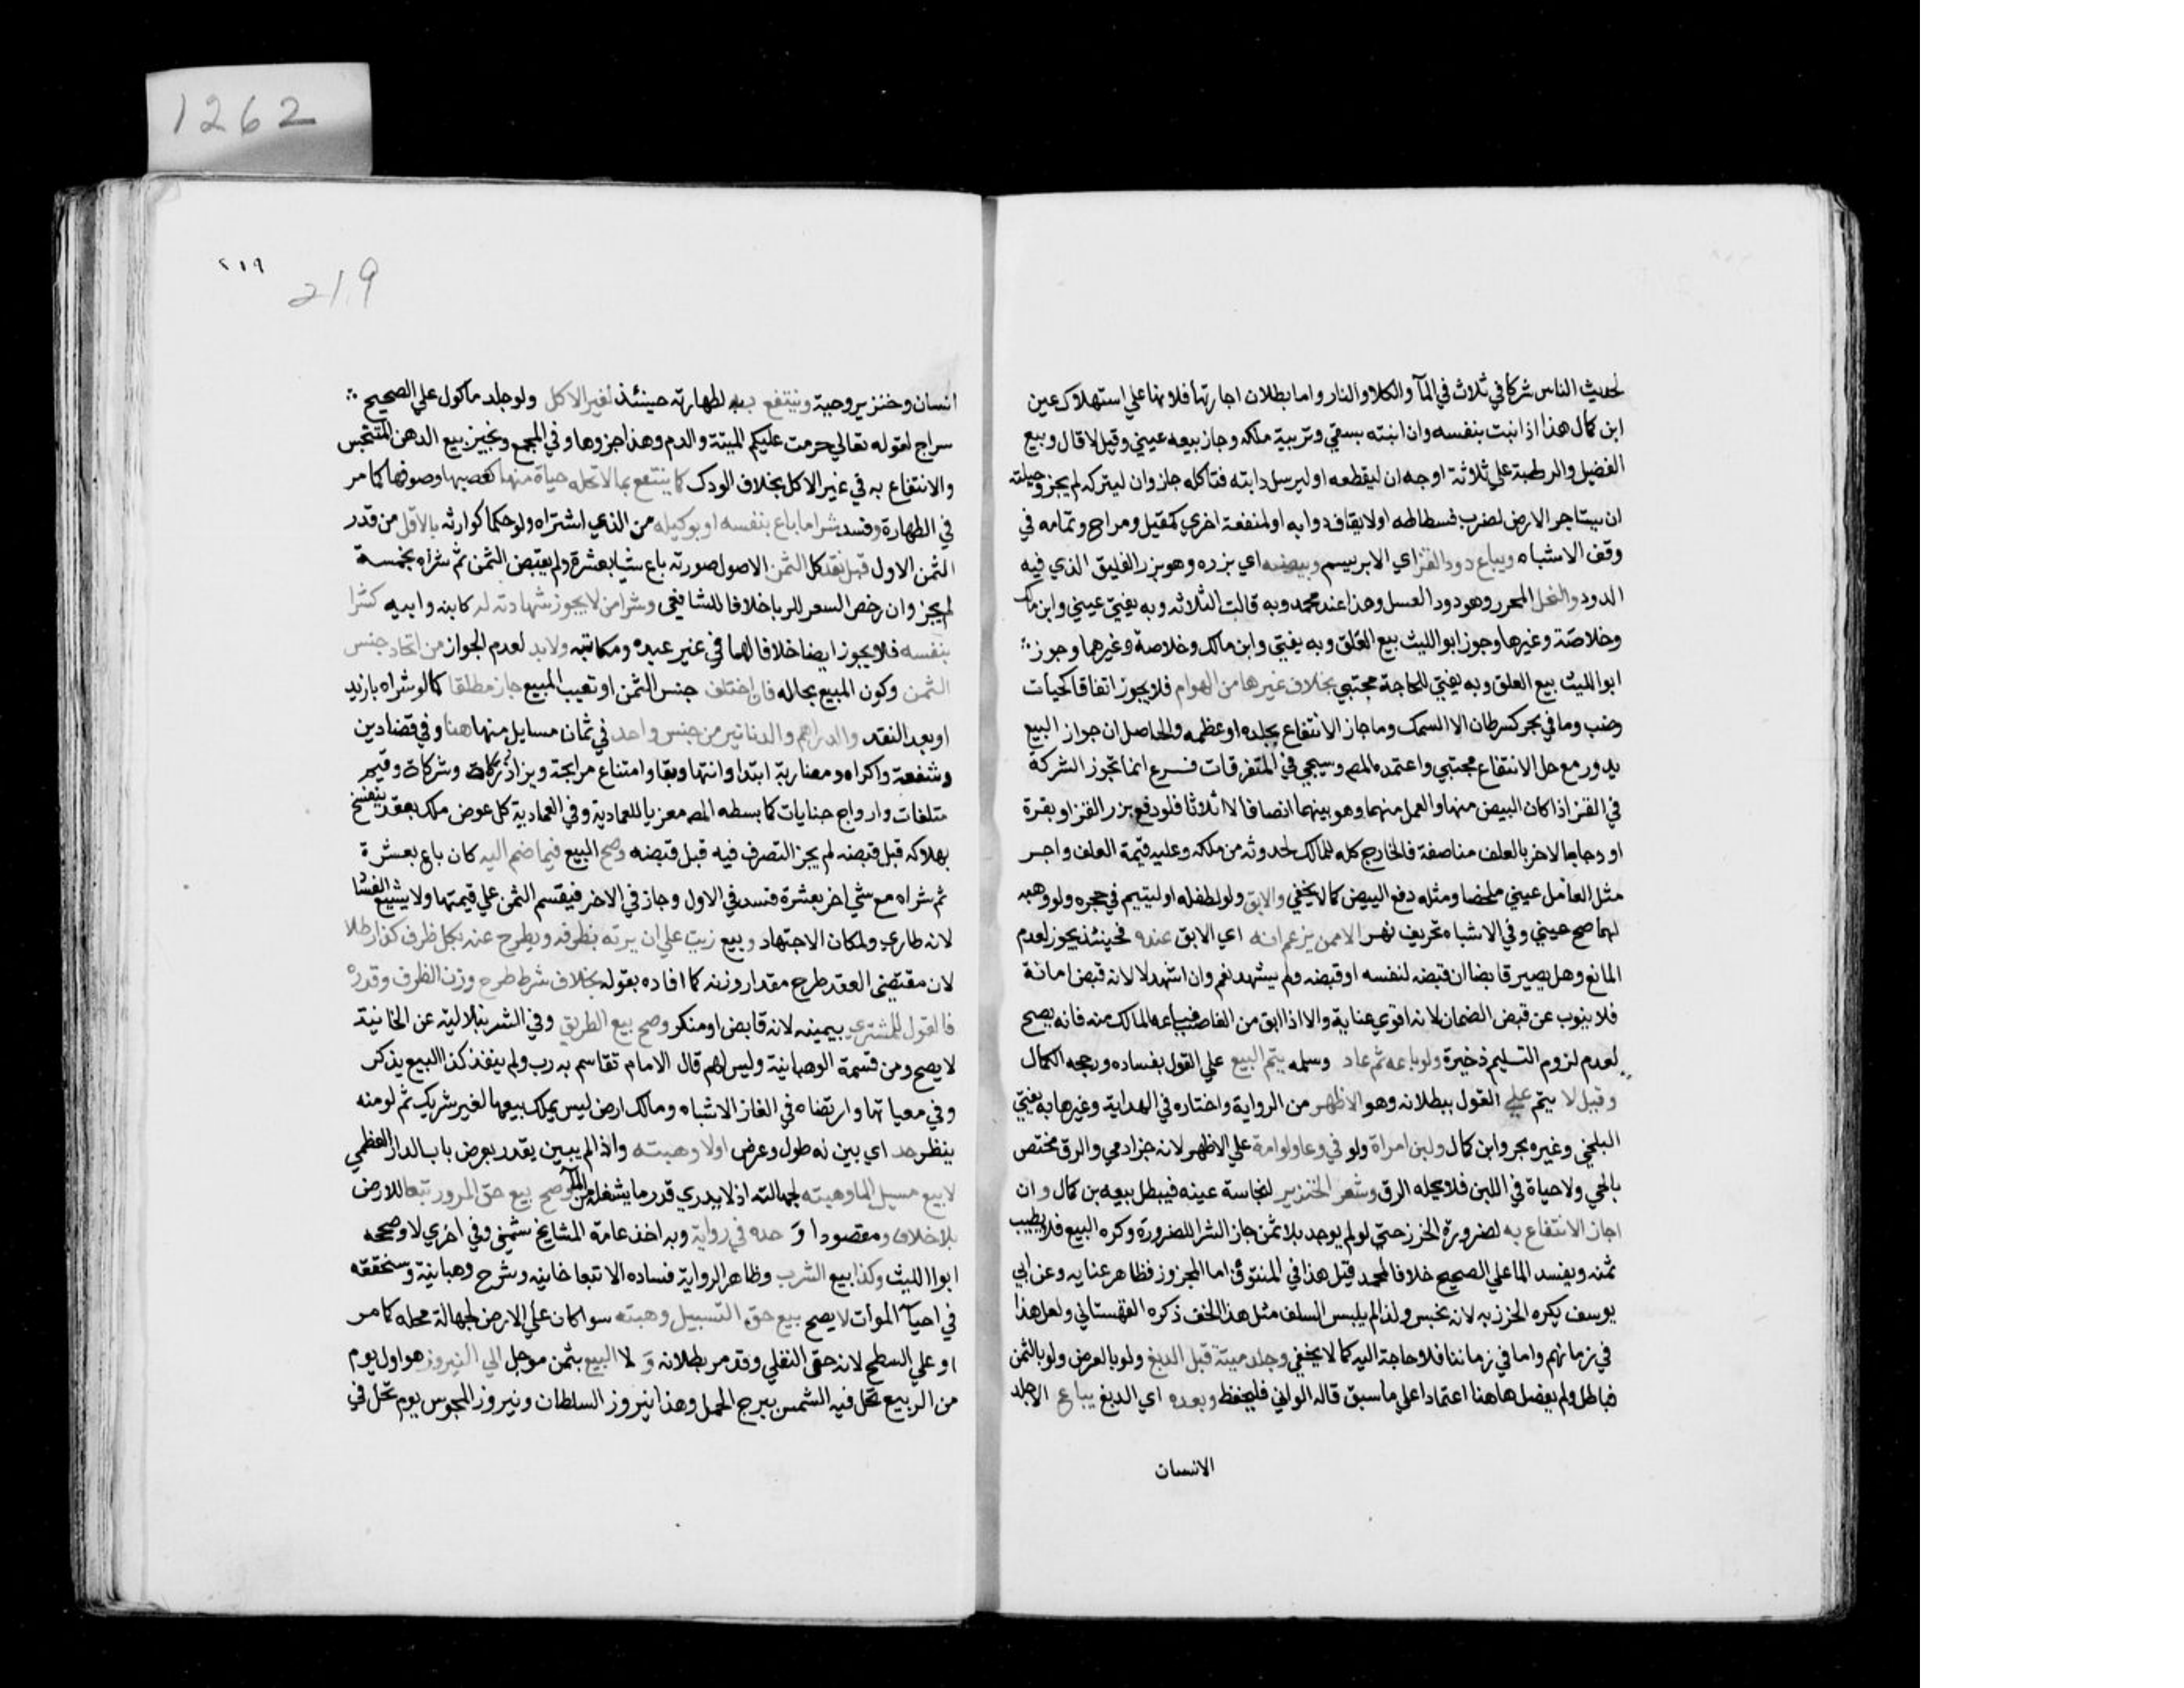 لحديث الناس شركا في ثلاث في المآ والكلا والنار واما بطلان اجارتها فلانها علي استهلاك عين
ابن كمال هذا اذا نبت بنفسه وان انبته بسقي وتربية ملكه وجاز بيعه عيني وقيل لا قال وبيع
الفضيل والرطبة علي ثلاثة اوجه ان ليقطعه او ليرسل دابته فتاكله جاز وان ليتركه لم يجز وحيلته
ان يستاجر الارض لضرب فسطاطه او لايقاف دوابه او لمنفعة اخري كمقيل ومراح وتمامه في
وقف الاشباه ويباع دود القز اي الابريسم وبيضه اي بزره وهو بزر الفليق الذي فيه
الدود والنحل المحرر وهو دود العسل وهذا عند محمد وبه قالت الثلاثه وبه يفتي عيني وابن مالك
وخلاصة وغيرها وجوز ابو الليث بيع العلق وبه يفتي وابن مالك وخلاصة وغيرهما وجوز
ابو الليث بيع العلق وبه يفتي للحاجة مجتبي بخلاف غيرها من الهوام فلا يجوز اتفاقا كحيات
وضب وما في بحر كسرطان الا السمك وما جاز الانتفاع بجلده او عظمه والحاصل ان جواز البيع
يدور مع حل الانتفاع مجتبي واعتمده المص وسيجي في المتفرقات فرع انما تجوز الشركة
في القز اذا كان البيض منهما والعمل منهما وهو بينهما انصافا لا اثلاثا فلو دفع بزر القز او بقرة
او دجاجا لاخر بالعلف مناصفة فالخارج كله للمالك لحدوثه من ملكه وعليه قيمة العلف واجر
مثل العامل عيني ملخصا ومثله دفع البيض كما لا يخفي والابق ولو لطفله او ليتيم في حجره ولو وهبه
لهما صح عيني وفي الاشباه تحريف نهر الا ممن يزعم انه اي الابق عنده فحينئذ يجوز لعدم
المانع وهل يصير قابضا ان قبضه لنفسه او قبضه ولم يشهد نعم وان اشهد لا لانه قبض امانة
فلا ينوب عن قبض الضمان لانه اقوي عناية والا اذا ابق من الغاصب فباعه المالك منه فانه يصح
لعدم لزوم التسليم ذخيرة ولو باعه ثم عاد وسلمه يتم البيع علي القول بفساده ورجحه الكمال
وقيل لا يتم علي القول ببطلانه وهو الاظهر من الرواية واختاره في الهداية وغيرها به يفتي
البلخي وغيره بحر وابن كمال ولبن امراة ولو في وعا ولو امة علي الاظهر لانه جزا دمي والرق مختص
بالحي ولا حياة في اللبن فلا يحله الرق وشعر الخنزير لنجاسة عينه فيبطل بيعه بن كمال وان
اجاز الانتفاع به لضرورة الخرز حتي لو لم يوجد بلا ثمن جاز الشرا للضرورة وكره البيع فلا يطيب
ثمنه ويفسد الما علي الصحيح خلافا لمحمد قيل هذا في المنتوف اما المجزوز فطاهر عنايه وعن ابي
يوسف يكره الخرز به لانه نجس ولذا لم يلبس السلف مثل هذا الخف ذكره القهستاني ولعل هذا
في زمانهم واما في زماننا فلا حاجة اليه كما لا يخفي وجلد ميتة قبل الدبغ ولو بالعرض ولو بالثمن
فباطل ولم يفصل هاهنا اعتمادا علي ما سبق قاله الواني فليحفظ وبعده اي الدبغ يباع الا جلد
الانسان
٢١٩
219
انسان وخنزير وحية وينتفع به لطهارته حينئذ لغير الاكل ولو جلد ماكول علي الصحيح
سراج لقوله تعالي حرمت عليكم الميتة والدم وهذا جزوها وفي المجمع ونجيز بيع الدهن المتنجس
والانتفاع به في غير الاكل بخلاف الودك كما ينتفع بما لا تحله حياة منها كعصبها وصوفها كما مر
في الطهارة وفسد شرا ما باع بنفسه او بوكيله من الذي اشتراه ولو حكما كوارثه بالاقل من قدر
الثمن الاول قبل نقد كل الثمن الاصول صورته باع شيا بعشرة ولم يقبض الثمن ثم شراه بخمسة
لم يجز وان رخص السعر للربا خلافا للشافعي وشرا من لا يجوز شهادته له كابنه وابيه كشرا
بنفسه فلا يجوز ايضا خلافا لهما في غير عبده ومكاتبه ولا بد لعدم الجواز من اتحاد جنس
الثمن وكون المبيع بحاله فان اختلف جنس الثمن او تعيب المبيع جاز مطلقا كما لو شراه بازيد
او بعد النقد والدراهم والدنانير من جنس واحد في ثمان مسايل منها هنا وفي قضا دين
وشفعة واكراه ومضاربة ابتدا وانتها وبقا وامتناع مرابحة ويزاد زكاة وشركات وقيم
متلفات واروش جنايات كما بسطه المص معزيا للعمادية وفي العمادية كل عوض ملك بعقد ينفسخ
بهلاكه قبل قبضه لم يجز التصرف فيه قبل قبضه وصح البيع فيما ضم اليه كان باع بعشرة
ثم شراه مع شي اخر بعشرة فسد في الاول وجاز في الاخر فيقسم الثمن علي قيمتها ولا يشيع الفساد
لانه طاري ولمكان الاجتهاد وبيع زيت علي ان يزنه بظرفه ويطرح عنه بكل ظرف كذا رطلا
لان مقتضي العقد طرح مقدار وزنه كما افاده بقوله بخلاف شرط طرح وزن الظرف وقدره
فالقول للمشتري بيمينه لانه قابض او منكر وصح بيع الطريق وفي الشرنبلالية عن الخانية
لا يصح ومن قسمة الوهبانية وليس لهم قال الامام تقاسم بدرب ولم ينفذ كذا البيع يذكر
وفي معياتها وارتضاه في الغاز الاشباه ومالك ارض ليس يملك بيعها لغير شريك ثم لو منه
ينظر حد اي بين له طول وعرض اولا وهبته واذا لم يبين يقدر بعرض باب الدار العظمي
لا بيع مسيل الما وهبته لجهالته اذ لا يدري قدر ما يشغله من المآ وصح بيع حق المرور تبعا للارض
بلا خلاف ومقصودا وحده في رواية وبه اخذ عامة المشايخ شمني وفي اخري لا وصححه
ابو الليث وكذا بيع الشرب وظاهر الرواية فساده الا تبعا خانيه وشرح وهبانية وسنحققه
في احيآ الموات لا يصح بيع حق التسييل وهبته سوا كان علي الارض لجهالة محله كما مر
او علي السطح لانه حق التعلي وقد مر بطلانه و لا البيع بثمن موجل الي النيروز هو اول يوم
من الربيع تحل فيه الشمس ببرج الحمل وهذا نيروز السلطان ونيروز المجوس يوم تحل في
1262